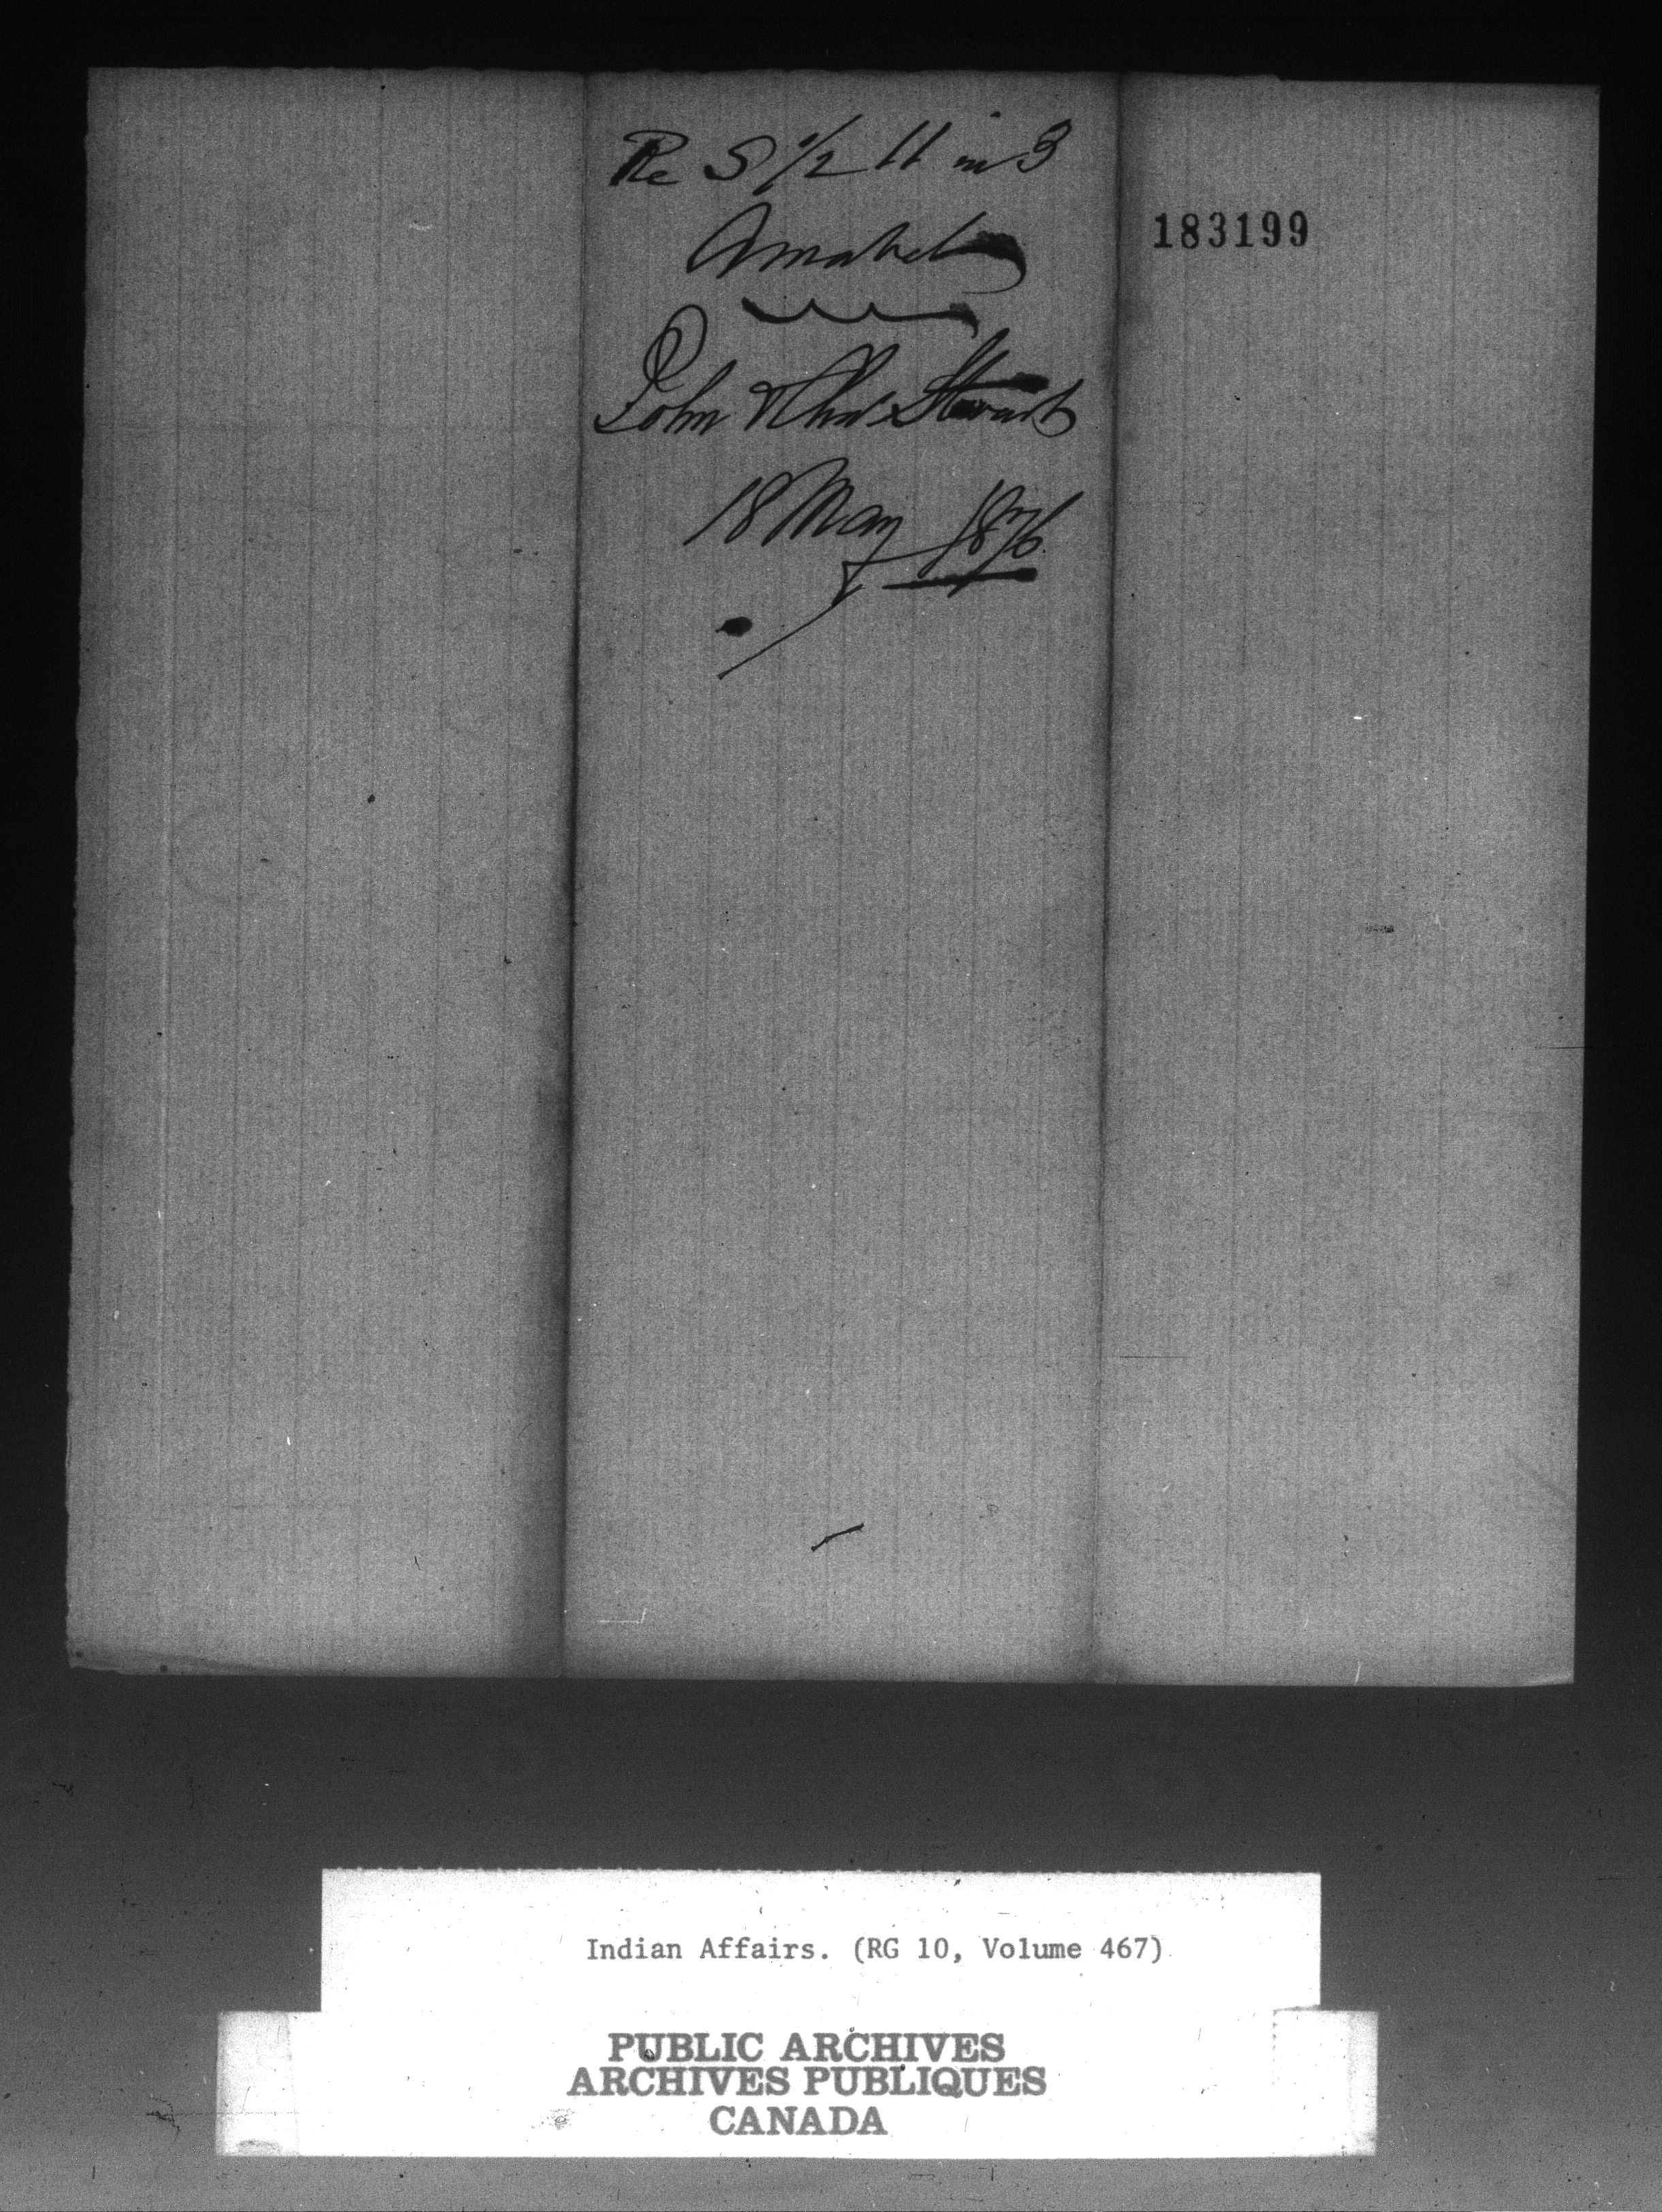 Re S 1/2 11 in 3
Amabel
John & Chas Stewart
18 May 1876
183199
Indian Affairs. (RG 10, Volume 467)
PUBLIC ARCHIVES
ARCHIVES PUBLIQUES
CANADA